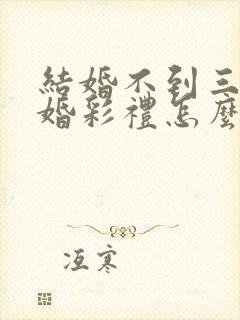 結婚不到三
婚彩禮怎麼
冱寒